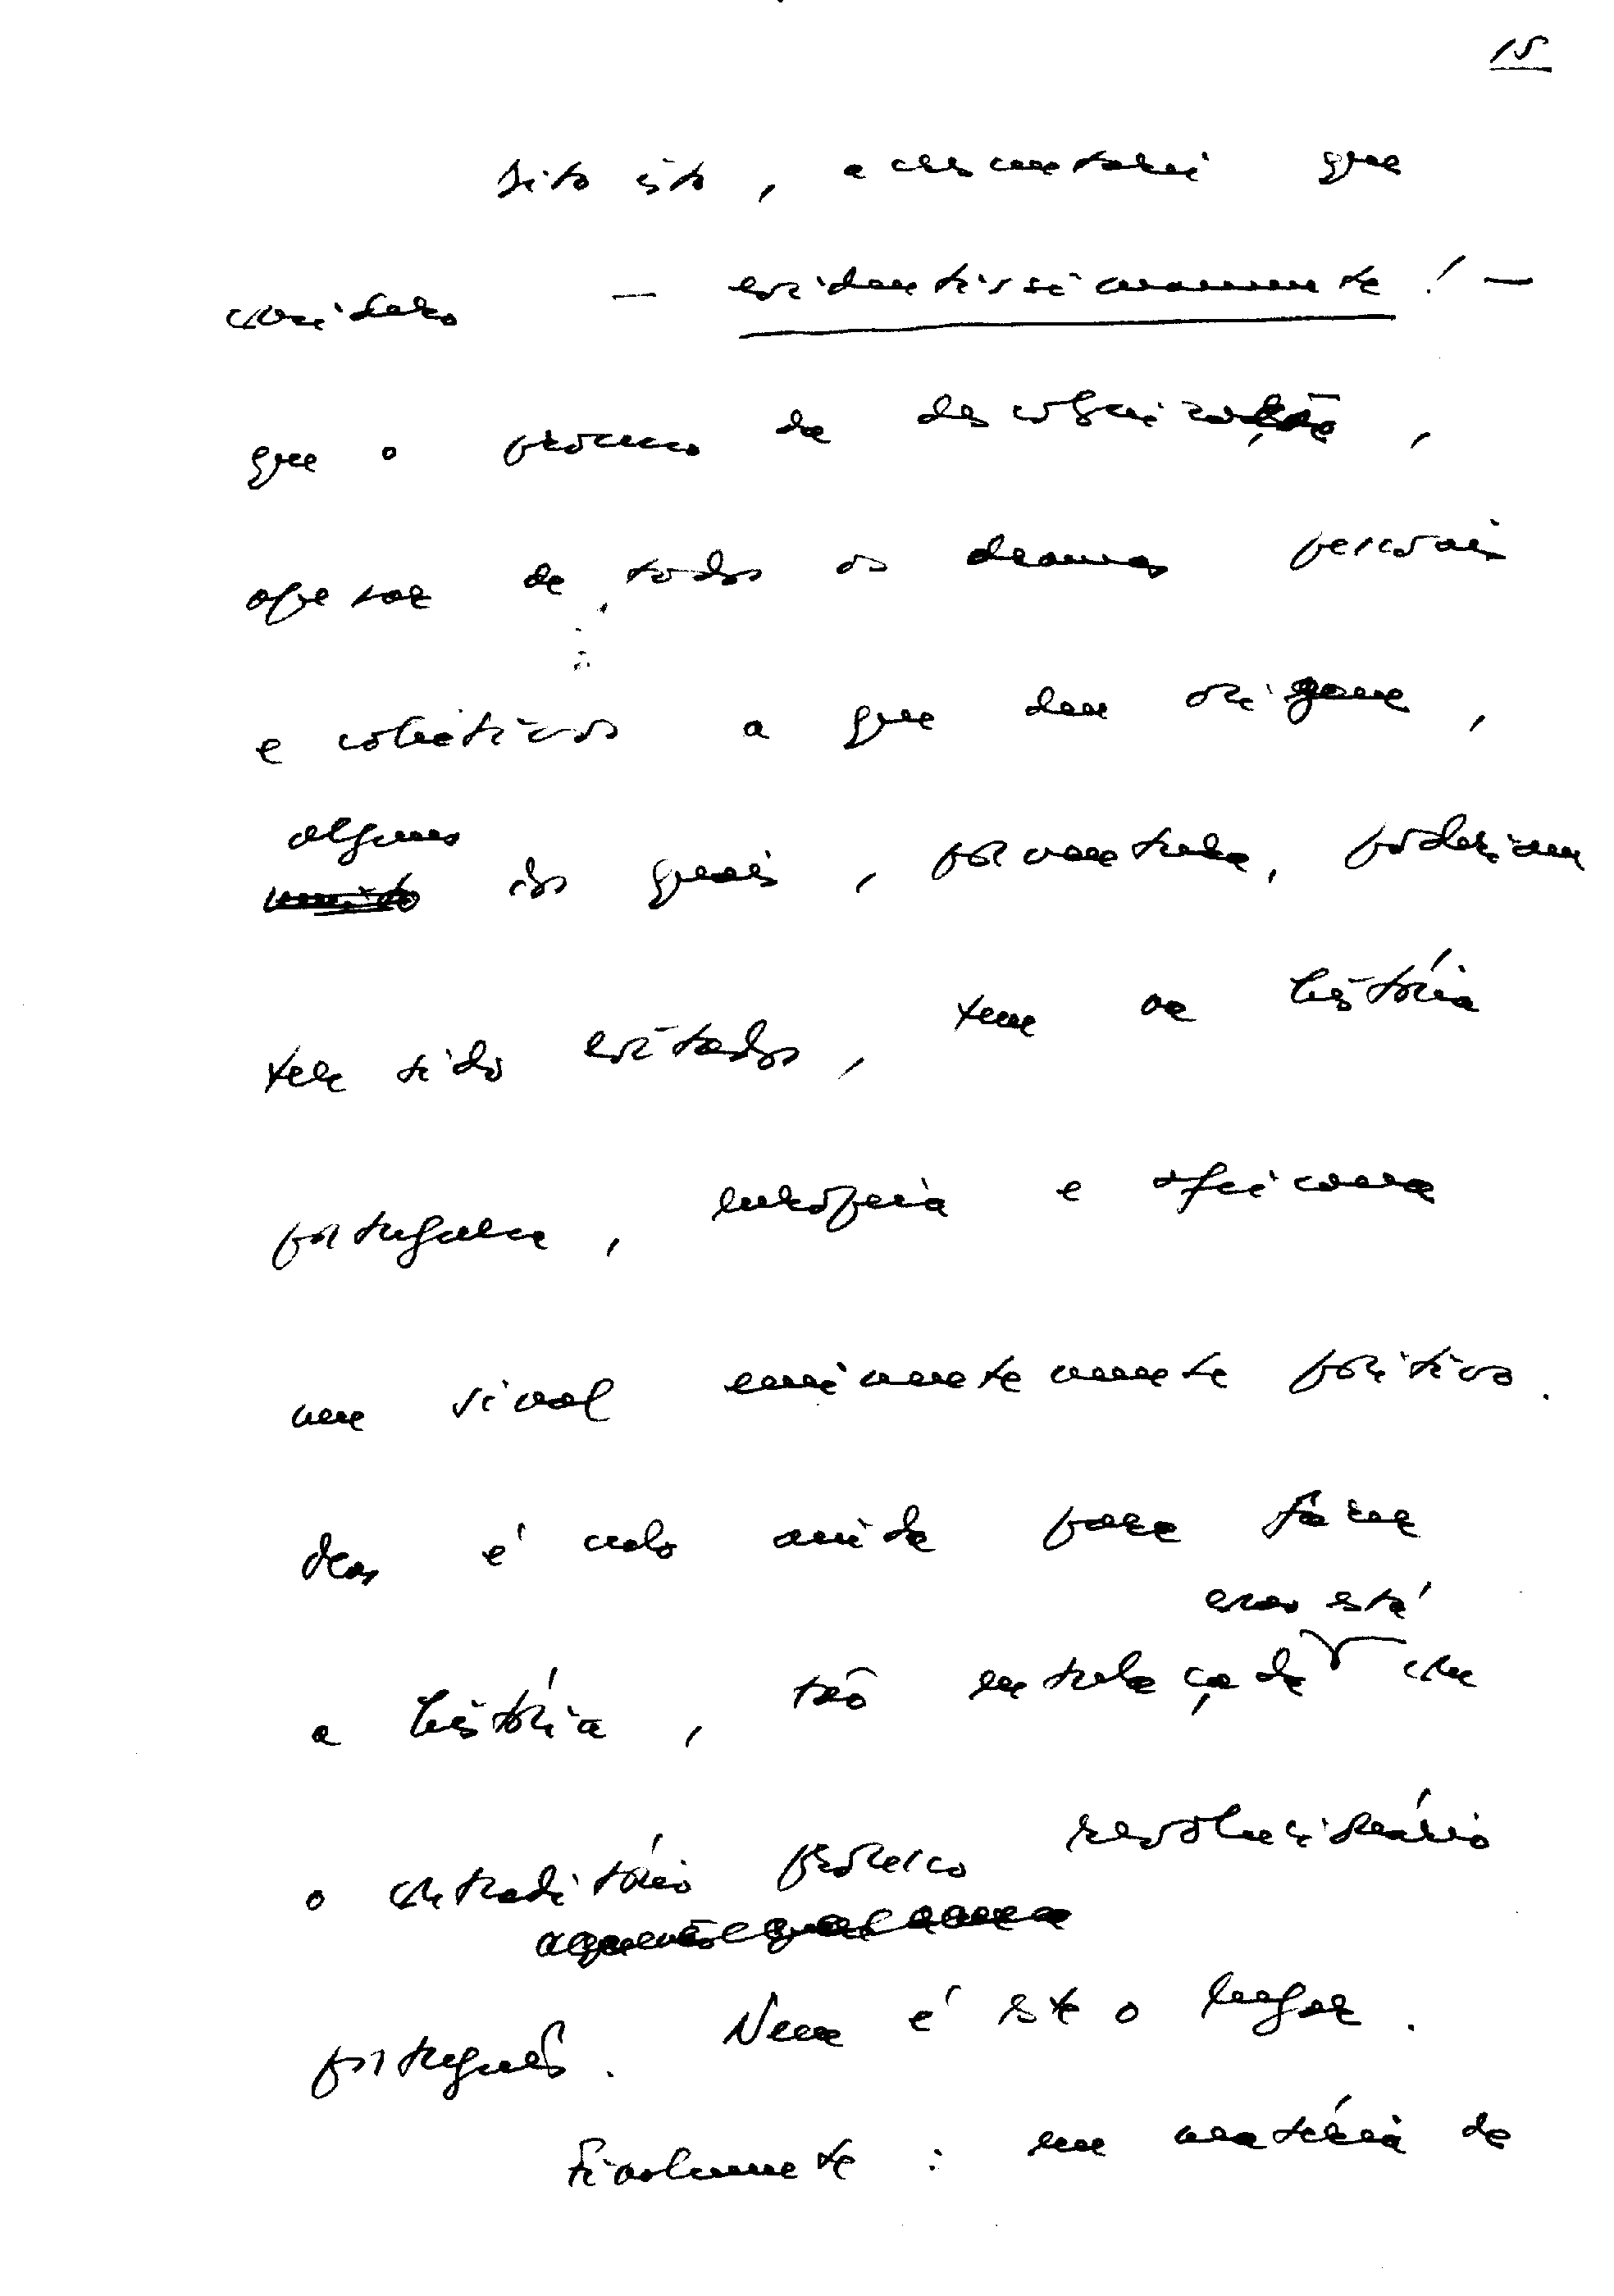 15
Dito isto, acrescentarei que
considero — evidentissimamente! —
que o processo de descolonização,
apesar de todos os dramas pessoais
e colectivos a que deu origem,
alguns
muito dos quais, porventura, poderiam
ter sido evitados, tem na história
portuguesa, europeia e africana
um sinal eminentemente positivo.
Mas é cedo ainda para fazer
essa está
a história, tão entrelaçada com
o contraditório processo revolucionário
português. Nem é este o lugar.
Finalmente: em matéria de